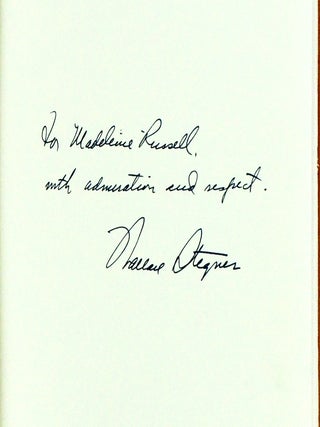 For Madeleine Russell,
with admiration and respect.
Wallace Stegner